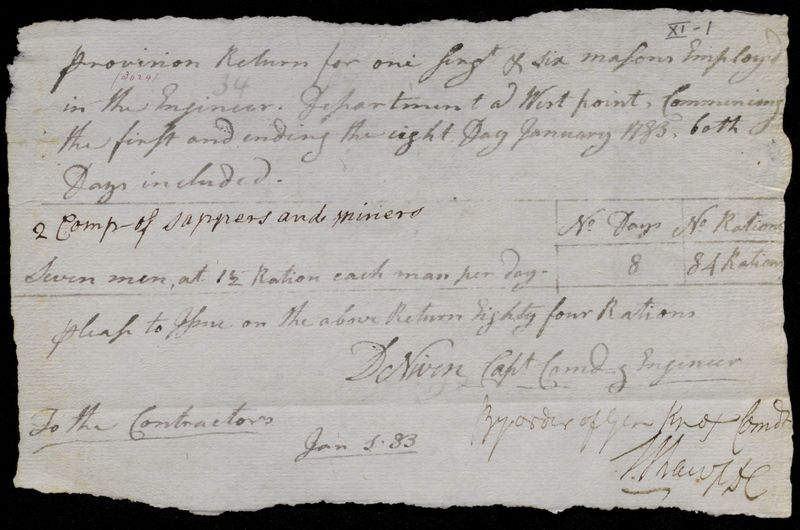 XI-1
Provision Return for one Sergt & six masons Employd
(2024)
34
in the Engineer. Department at West point, Commencing
the first and ending the eight Day January 1783, both
Days included.
2 Comp-of Sappers and Miners
No Days No Rations
Seven men, at 1½ Ration each man per day- 8 84 Rations
please to Issue on the above Return Eighty four Rations
D Niven Capt Comdg Engineer
To the Contractors
By order of Gen Knox Comdt
Jan 1. 83
S Shaw